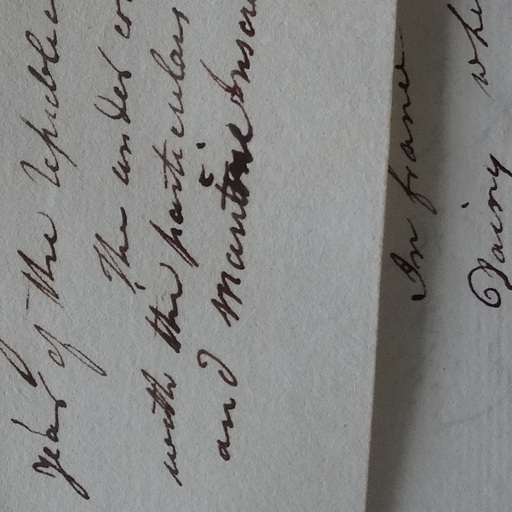 year of the republic
The under
with the particulars
and mantine
In france
Dairy whi